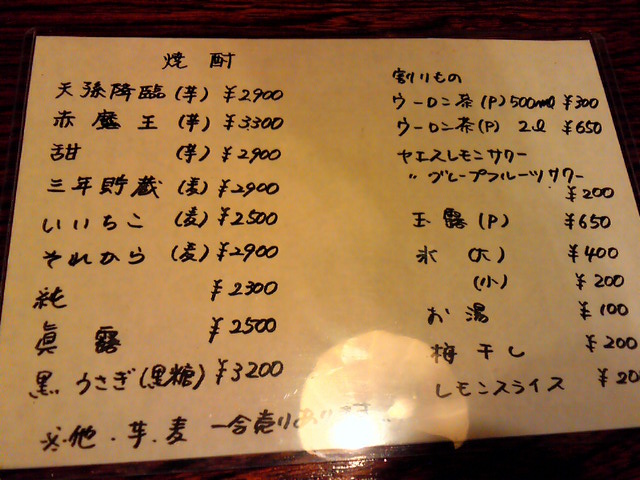 焼酎
天孫降臨(芋) ¥2900
赤魔王(芋) ¥3300
甜(芋) ¥2900
三年貯蔵(麦) ¥2900
いいちこ(麦) ¥2500
それから(麦) ¥2900
純 ¥2300
眞露 ¥2500
黒うさぎ(黒糖) ¥3200
※他・芋・麦 一合売りあります
割りもの
ウーロン茶(P)500ml ¥300
ウーロン茶(P) 2ℓ ¥650
ヤエスレモンサワー
〃 グレープフルーツサワー
¥200
玉露(P) ¥650
氷(大) ¥400
(小) ¥200
お湯 ¥100
梅干し ¥200
レモンスライス ¥20